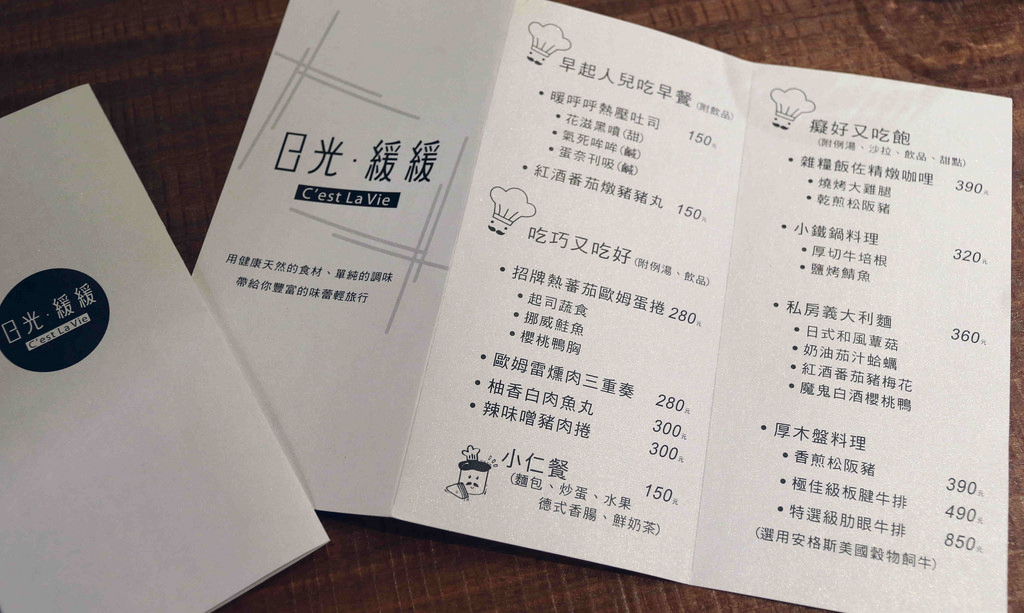 日光·緩緩
C'est La Vie
日光·緩緩
C'est La Vie
用健康天然的食材、單純的調味
帶給你豐富的味蕾輕旅行
早起人兒吃早餐(附飲品)
•暖呼呼熱壓吐司 150元
•花滋黑噴(甜)
•氣死哞哞(鹹)
•蛋奈刊吸(鹹)
•紅酒番茄燉豬豬丸 150元
吃巧又吃好(附例湯、飲品)
•招牌熱蕃茄歐姆蛋捲 280元
•起司蔬食
•挪威鮭魚
•櫻桃鴨胸
•歐姆雷燻肉三重奏 280元
•柚香白肉魚丸 300元
•辣味噌豬肉捲 300元
小仁餐 150元
(麵包、炒蛋、水果
德式香腸、鮮奶茶)
癡好又吃飽
(附例湯、沙拉、飲品、甜點)
•雜糧飯佐精燉咖哩 390元
•燒烤大雞腿
•乾煎松阪豬
•小鐵鍋料理 320元
•厚切牛培根
•鹽烤鯖魚
•私房義大利麵 360元
•日式和風蕈菇
•奶油茄汁蛤蠣
•紅酒番茄豬梅花
•魔鬼白酒櫻桃鴨
•厚木盤料理
•香煎松阪豬 390元
•極佳級板腱牛排 490元
•特選級肋眼牛排 850元
(選用安格斯美國穀物飼牛)